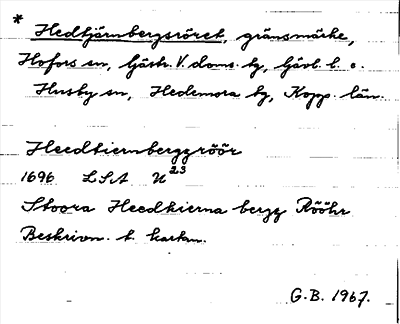 * Hedtjärnbergsröret, gränsmärke,
Hofors sn, Gästr. V. doms. tg, Gävl. l. o.
Husby sn, Hedemora tg, Kopp. län.
Heedtiernbergzröör
1696 LSA U 23
Stoora Heedkierna bergz Rööhr
Beskrivn. t. kartan.
G.B. 1967.